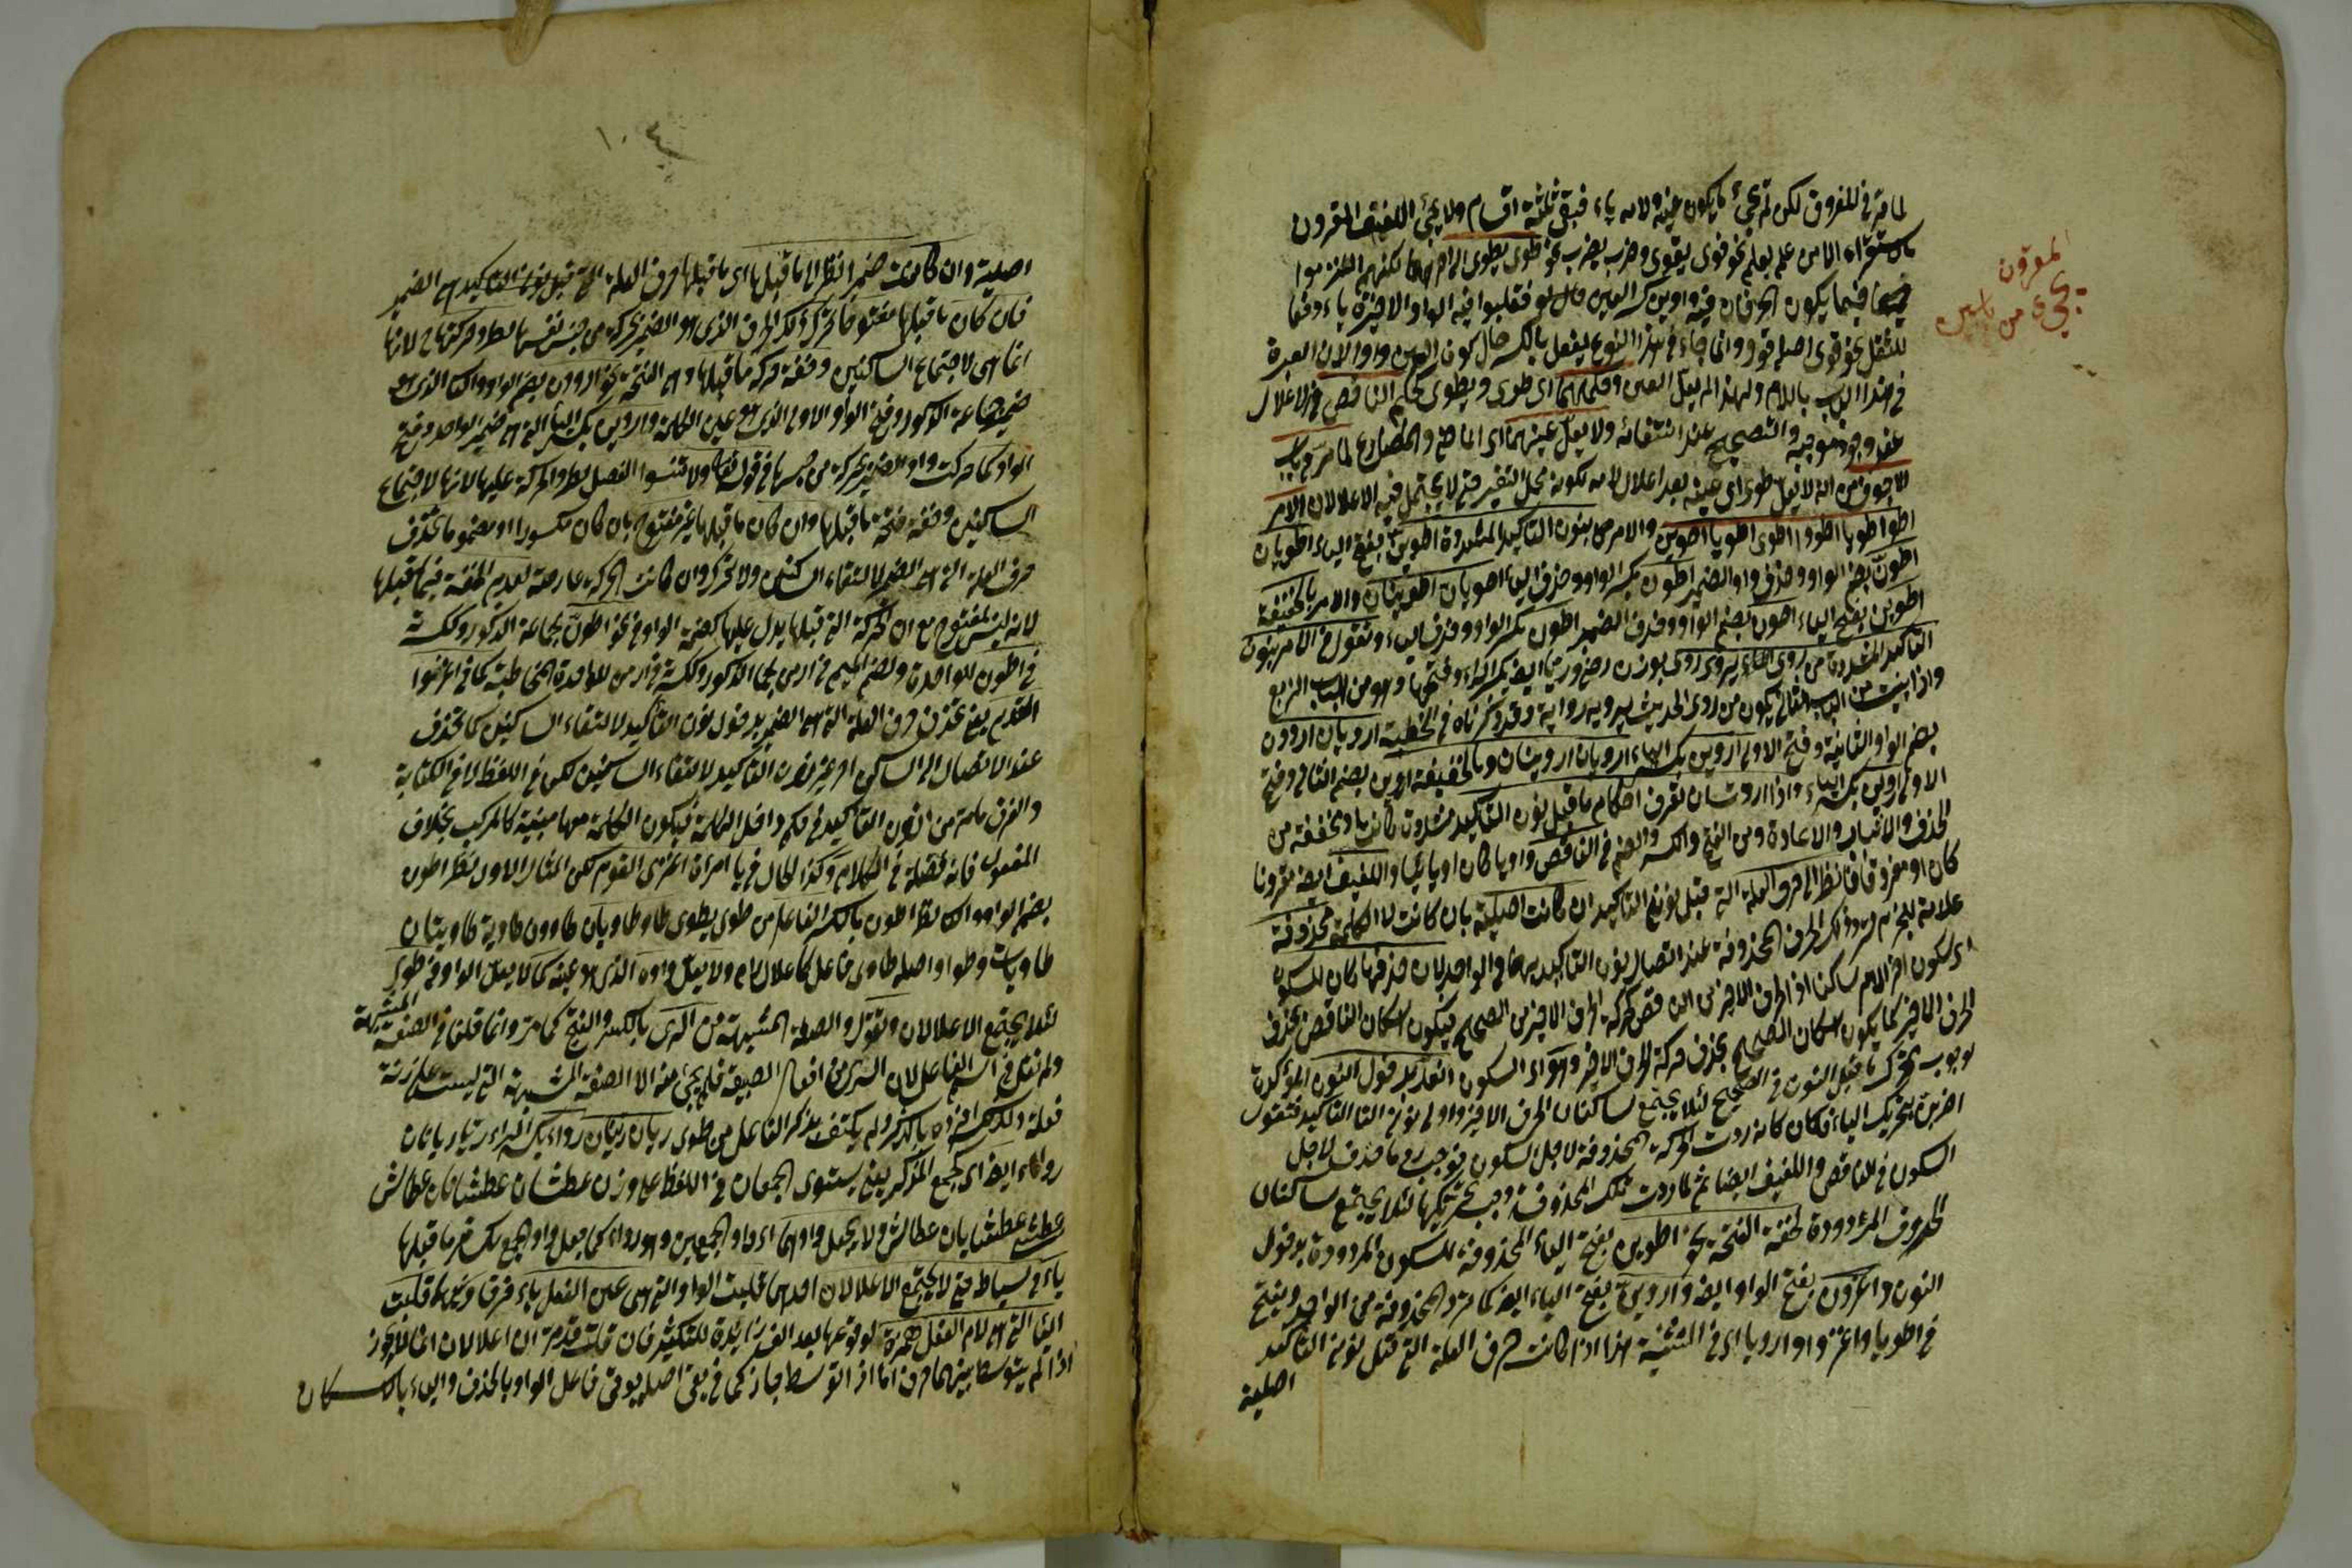 لما مر في المفروق لكن لم يجئ ما يكون عينه ولامه ياء فبقي ثلثة اقسام ولا يجئ اللفيف المقرون
بالاستقراء الا من علم يعلم نحو قوى يقوى وضرب يضرب نحو طوى يطوى الى اخرهما لكنهم التزموا
فيما يكون الحرفان فيه واوين كسر العين فقلبوا فيه الواو الاخيرة ياء دفعا
للثقل نحو قوى اصله قوو وانما جاء في هذا النوع يفعل بالكسر حال كون العين واوا لان العبرة
في هذا الباب باللام ولهذا لم يعل العين وحكمهما اى طوى ويطوى كحكم الناقص في الاعلال
عند وجود موجبه والتصحيح عند انتفائه ولا يعل عينهما اى الماضى والمضارع لما مر في باب
الاجوف من انه لا يعل طوى اى عينه بعد اعلال لامه لكونه محل التغير حتى لا يجتمل فيه الاعلالان الامر
اطو اطويا اطووا اطوى اطويا اطوين والامر بنون التاكيد المشددة اطوين بفتح الياء اطويان
اطون بضم الواو وحذف واو الضمير اطون بكسر الواو وحذف الياء اطويان اطوينان والامر بالخفيفة
اطوين بفتح الياء اطون بضم الواو وحذف الضمير اطون بكسر الواو وحذف الياء وتقول في الامر بنون
التاكيد المشددة من روى يروى بوزن رضى ايضا بكسر الراء وفتحها وهو من الباب الرابع
واذا بنيت من الباب الثانى يكون من روى الحديث يرويه رواية وقد ذكرناه في الخطبة ارويان اروون
بضم الواو الثانية وفتح الاولى اروين بكسر الياء ارويان اروينان وبالخفيفة اروين بضم الثانى وفتح
الاولى اروين بكسر الياء واذا اردت ان تعرف احكام ما قبل نون التاكيد مشددة كانت او مخففة من
الحذف والاثبات والاعادة ومن الفتح والكسر والضم في الناقص واويا كان او يائيا واللفيف ايضا مقرونا
كان او مفروقا فانظر الى حرف العلة التى قبل نونى التاكيد ان كانت اصلية بان كانت لام الكلمة محذوفة
علامة للجزم ترد ذلك الحرف المحذوفة عند اتصال نون التاكيد بها في الواحد لان حذفها كان للسكون
اى لسكون اخر الامر ساكنا اذ الحرف الاخير من الناقص كحركة الحرف الاخير من الصحيح فيكون اسكان الناقص بحذف
الحرف الاخير كما يكون اسكان الصحيح بحذف حركة الحرف الاخير وهو اى السكون انعدم بدخول النون المؤكدة
لوجوب تحرك ما قبل النون في الصحيح لئلا يجتمع ساكنان الحرف الاخير واولى نونى التاكيد فتقول
اضربن بتحريك الباء فكان كانه ردت الحركة المحذوفة لاجل السكون فوجب رد ما حذف لاجل
السكون في الناقص واللفيف ايضا ثم لما ردت تلك المحذوف وجب تحريكها لئلا يجتمع ساكنان
الحروف المردودة لخفة الفتحة نحو اطوين بفتح الياء المحذوفة للسكون المردودة بدخول
النون واغزون بفتح الواو ايضا واروين بفتح الياء ايضا كما مر والمحذوفة من الواحد ويفتح
في اطويا واغزوا وارويا اى في التثنية هذا اذا كانت حرف العلة التى قبل نونى التاكيد
اصلية
المقرون
يجئ من بابين
١٠٤
اصلية وان كانت ضميرا انظر الى ما قبلها اى ما قبل حرف العلة التى قبل نون التاكيد هى الضمير
فان كان ما قبلها مفتوحا تحرك ذلك الحرف الذى هو الضمير بحركة من جنس نفسها لطرو حركتها لانها
انما هى لاجتماع الساكنين وخفة حركة ما قبلها وهى الفتحة نحو اروون بضم الواو الذى هو
ضمير جماعة الذكور وفتح الواو الاولى الذى هو عين الكلمة واروين بكسر الياء التى هى ضمير الواحدة وفتح
الواو كما حركت واو الضمير بحركة من جنسها في قوله تعالى ولا تنسوا الفضل لطرو الحركة عليها لانها لاجتماع
الساكنين وخفة فتحة ما قبلها وان كان ما قبلها غير مفتوح بان كان مكسورا او مضموما تحذف
حرف العلة التى هى الضمير لالتقاء الساكنين ولا تحرك وان كانت الحركة عارضة لعدم الخفة فيما قبلها
لانه ليس بمفتوح مع ان الحركة التى قبلها يدل عليها كضمة الواو في نحو اطون لجماعة الذكور وكسرته
في اطون للواحدة وضم الميم في ارمن لجماعة الذكور وككسرته في ارمن للواحدة المخاطبة كما في اغزوا
القوم يعنى تحذف حرف العلة التى هى الضمير بدخول نون التاكيد لالتقاء الساكنين كما تحذف
عند الاتصال الى الساكن غير نون التاكيد لالتقاء الساكنين لكن في اللفظ لا في الكتابة
والفرق ما مر من ان نون التاكيد في حكم داخل الكلمة فيكون الكلمة معها مبنية كالمركب بخلاف
المفعول فانه فضلة في الكلام وكذا الحال في يا امراة اغزى القوم لكن المثال الاول نظير اطون
بضم الواو والثانى نظير اطون بالكسر الفاعل من طوى يطوى طاو طاويان طاوون طاوية طاويتان
طاويات وطواو اصله طاوى فاعل كاعلال رام ولا يعل واوه الذى هو عينه كما لا يعل الواو في طوى
لئلا يجتمع الاعلالان وتقول في الصفة المشبهة من الرى بالكسر والفتح كما مر وانما قلنا في الصفة المشبهة
ولم نقل في اسم الفاعل لان الرى من افعال الطبيعة فلم يجئ منه الا الصفة المشبهة التى ليست على زنة
فعله ولذلك افرده بالذكر ولم يكتف بذكر الفاعل من طوى ريان ريانان رواء بكسر الراء ريا رييان
رواء ايضا اى كجمع المذكر يعنى يستوى الجمعان في اللفظ على وزن عطشان عطشانان عطاش
عطشى عطشيان عطاش ولا يجعل واوهما اى واو الجمعين وهو رواء كما جعل واو الجمع بكسر ما قبلها
ياء في سياط حتى لا يجتمع الاعلالان احدهما قلبت الواو التى هى عين الفعل ياء فرقا وثانيهما قلبت
الياء التى هى لام الفعل همزة لوقوعها بعد الف زائدة للتكثير فان قلت قد مر ان اعلالان انما لا يجوز
اذا لم يتوسط بينهما حرف اما اذا توسط جاز كما في يقى اصله يوقى فاعل الواو بالحذف والياء بالاسكان